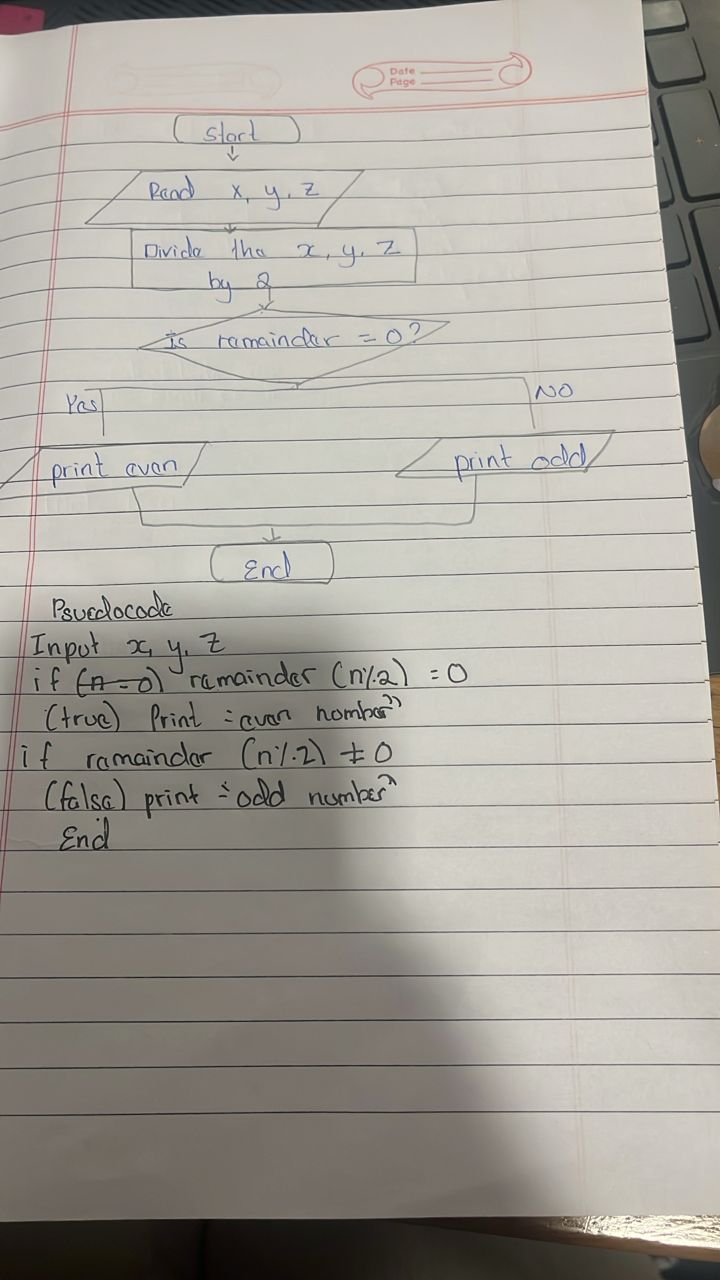 Date
Page
Start
Read x, y, z
Divide the x, y, z
by 2
is remainder = 0?
Yes
NO
print even
print odd
End
Psuedocode
Input x, y, z
if (n = 0) remainder (n%.2) = 0
(true) Print = even nomber"
if remainder (n%.2) ≠ 0
(false) print = odd number"
End